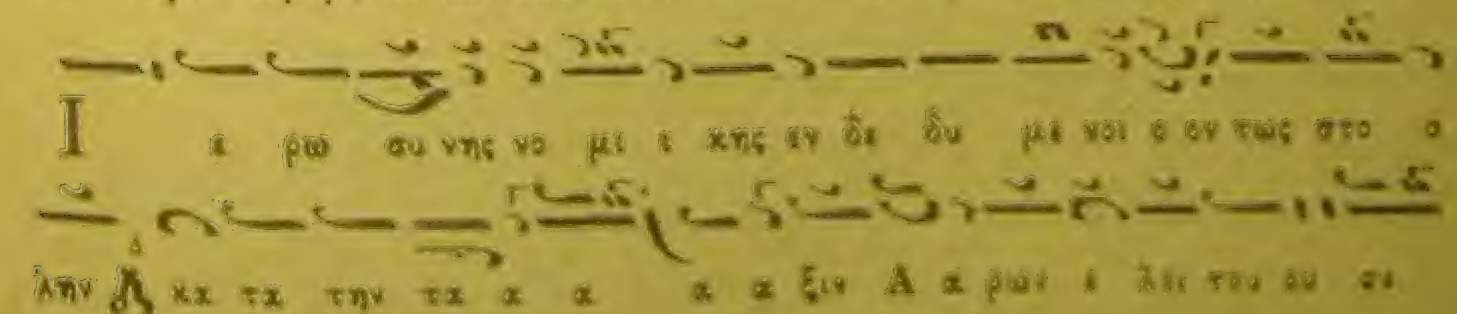 Ι ε ρω συ νης νο μι ι κης εν δε δυ με νοι ο ον τως στο ο
λην κα τα την τα α α α α ξιν Α α ρων ε λει του ου σε